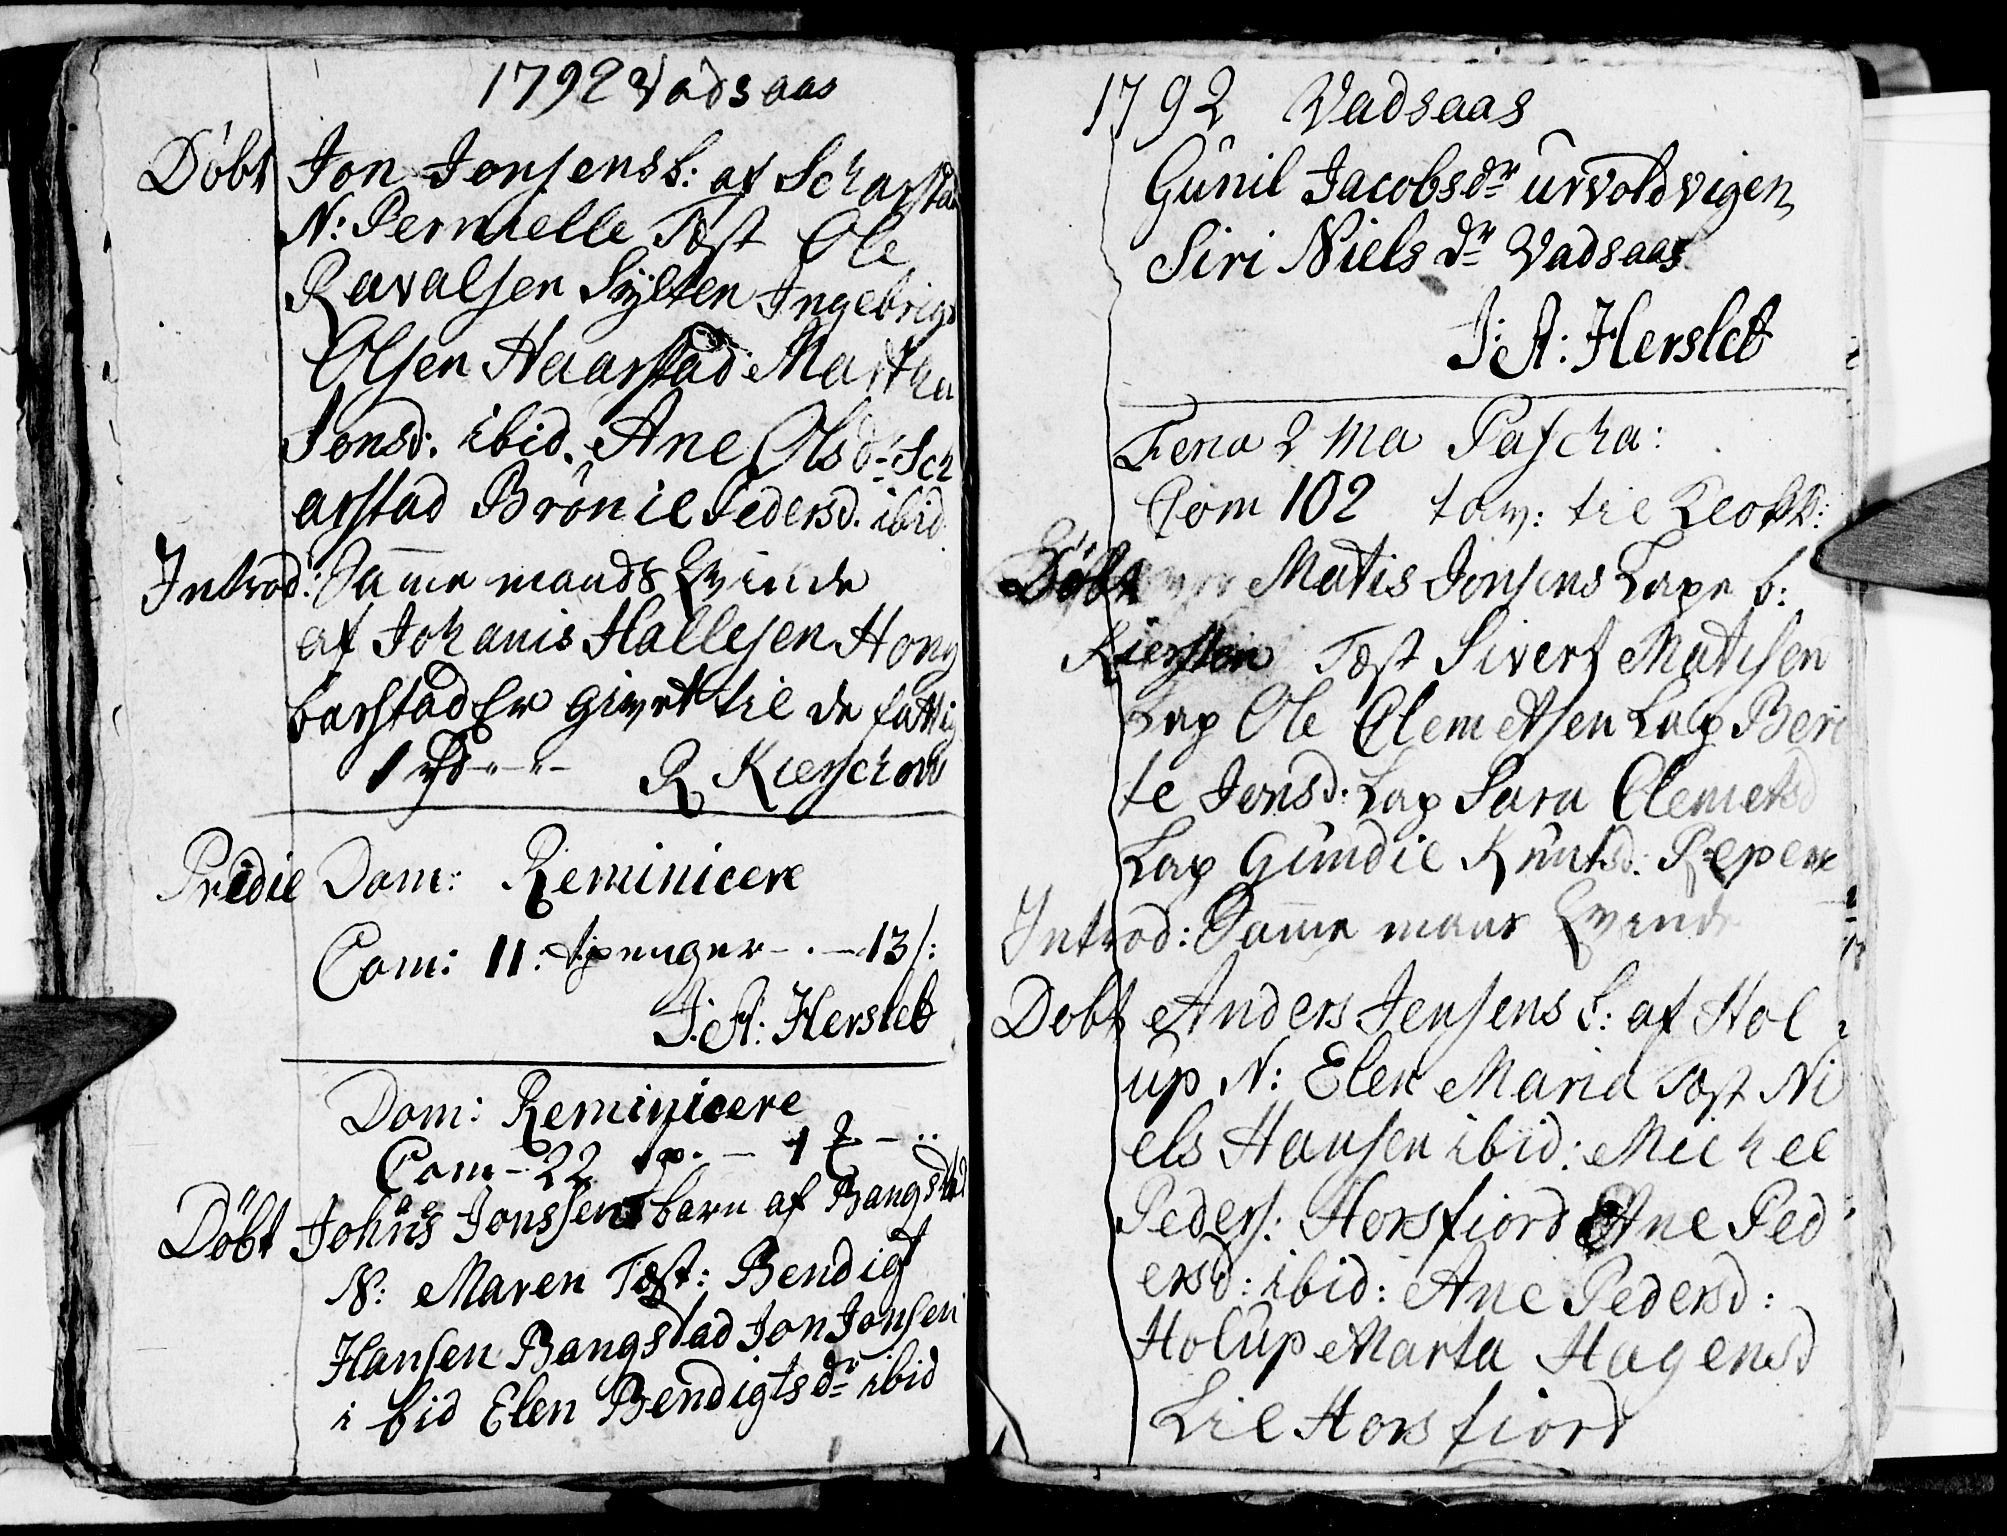 1792 Vadsaas
Døbt Jon Jonsens b: af Scharstad
N: Pernielle Test Ole
Ravalsen Sÿlten Ingebrigt
Olsen Haarstad Martha
Jonsd: ibid. Ane Olsdr Sch
arstad Brønil Pedersd. ibid
Introd: Samme mands Qvinde
af Johanis Hallesen Hong
barstad Er givet til de fattig
1 rd - " - " - R Kierschow
Predie Dom: Reminicere
Com: 11: penger - . - 13 s:
J: A: Herslet
Dom: Reminicere
Com - 22 p. - 1
Døbt Johñs Jonssens barn af Bangstad
N: Maren Test: Bendigt
Hansen Bangstad Jon Jonsen
i bid Elen Bendigtsdr ibid
1792 Vadsaas
Gunil Jacobsdr urvoldvigen
Siri Nielsdr Vadsaas
J: A: Herslet
Feria 2 Ma Pascha:
Com 102 tav: til Klokk:
Døbt Matis Jonsens Lape b:
Kiersten Test Sivert Matisen
Lap Ole Clemetsen Lap Beri
te Jonsd: Lap Sara Clemetsd
Lap Gundil Knutsd: Repen
Introd: Samme mans Qvinde
Dobt Anders Jensens b: af Hol
up N: Elen Maria Test Ni
els Hansen ibid: Michel
Peders: Horsfiord Ane Ped
ersd: ibid: Ane Pedersd:
Holup Marta Hagensd
Lil Horsfiord